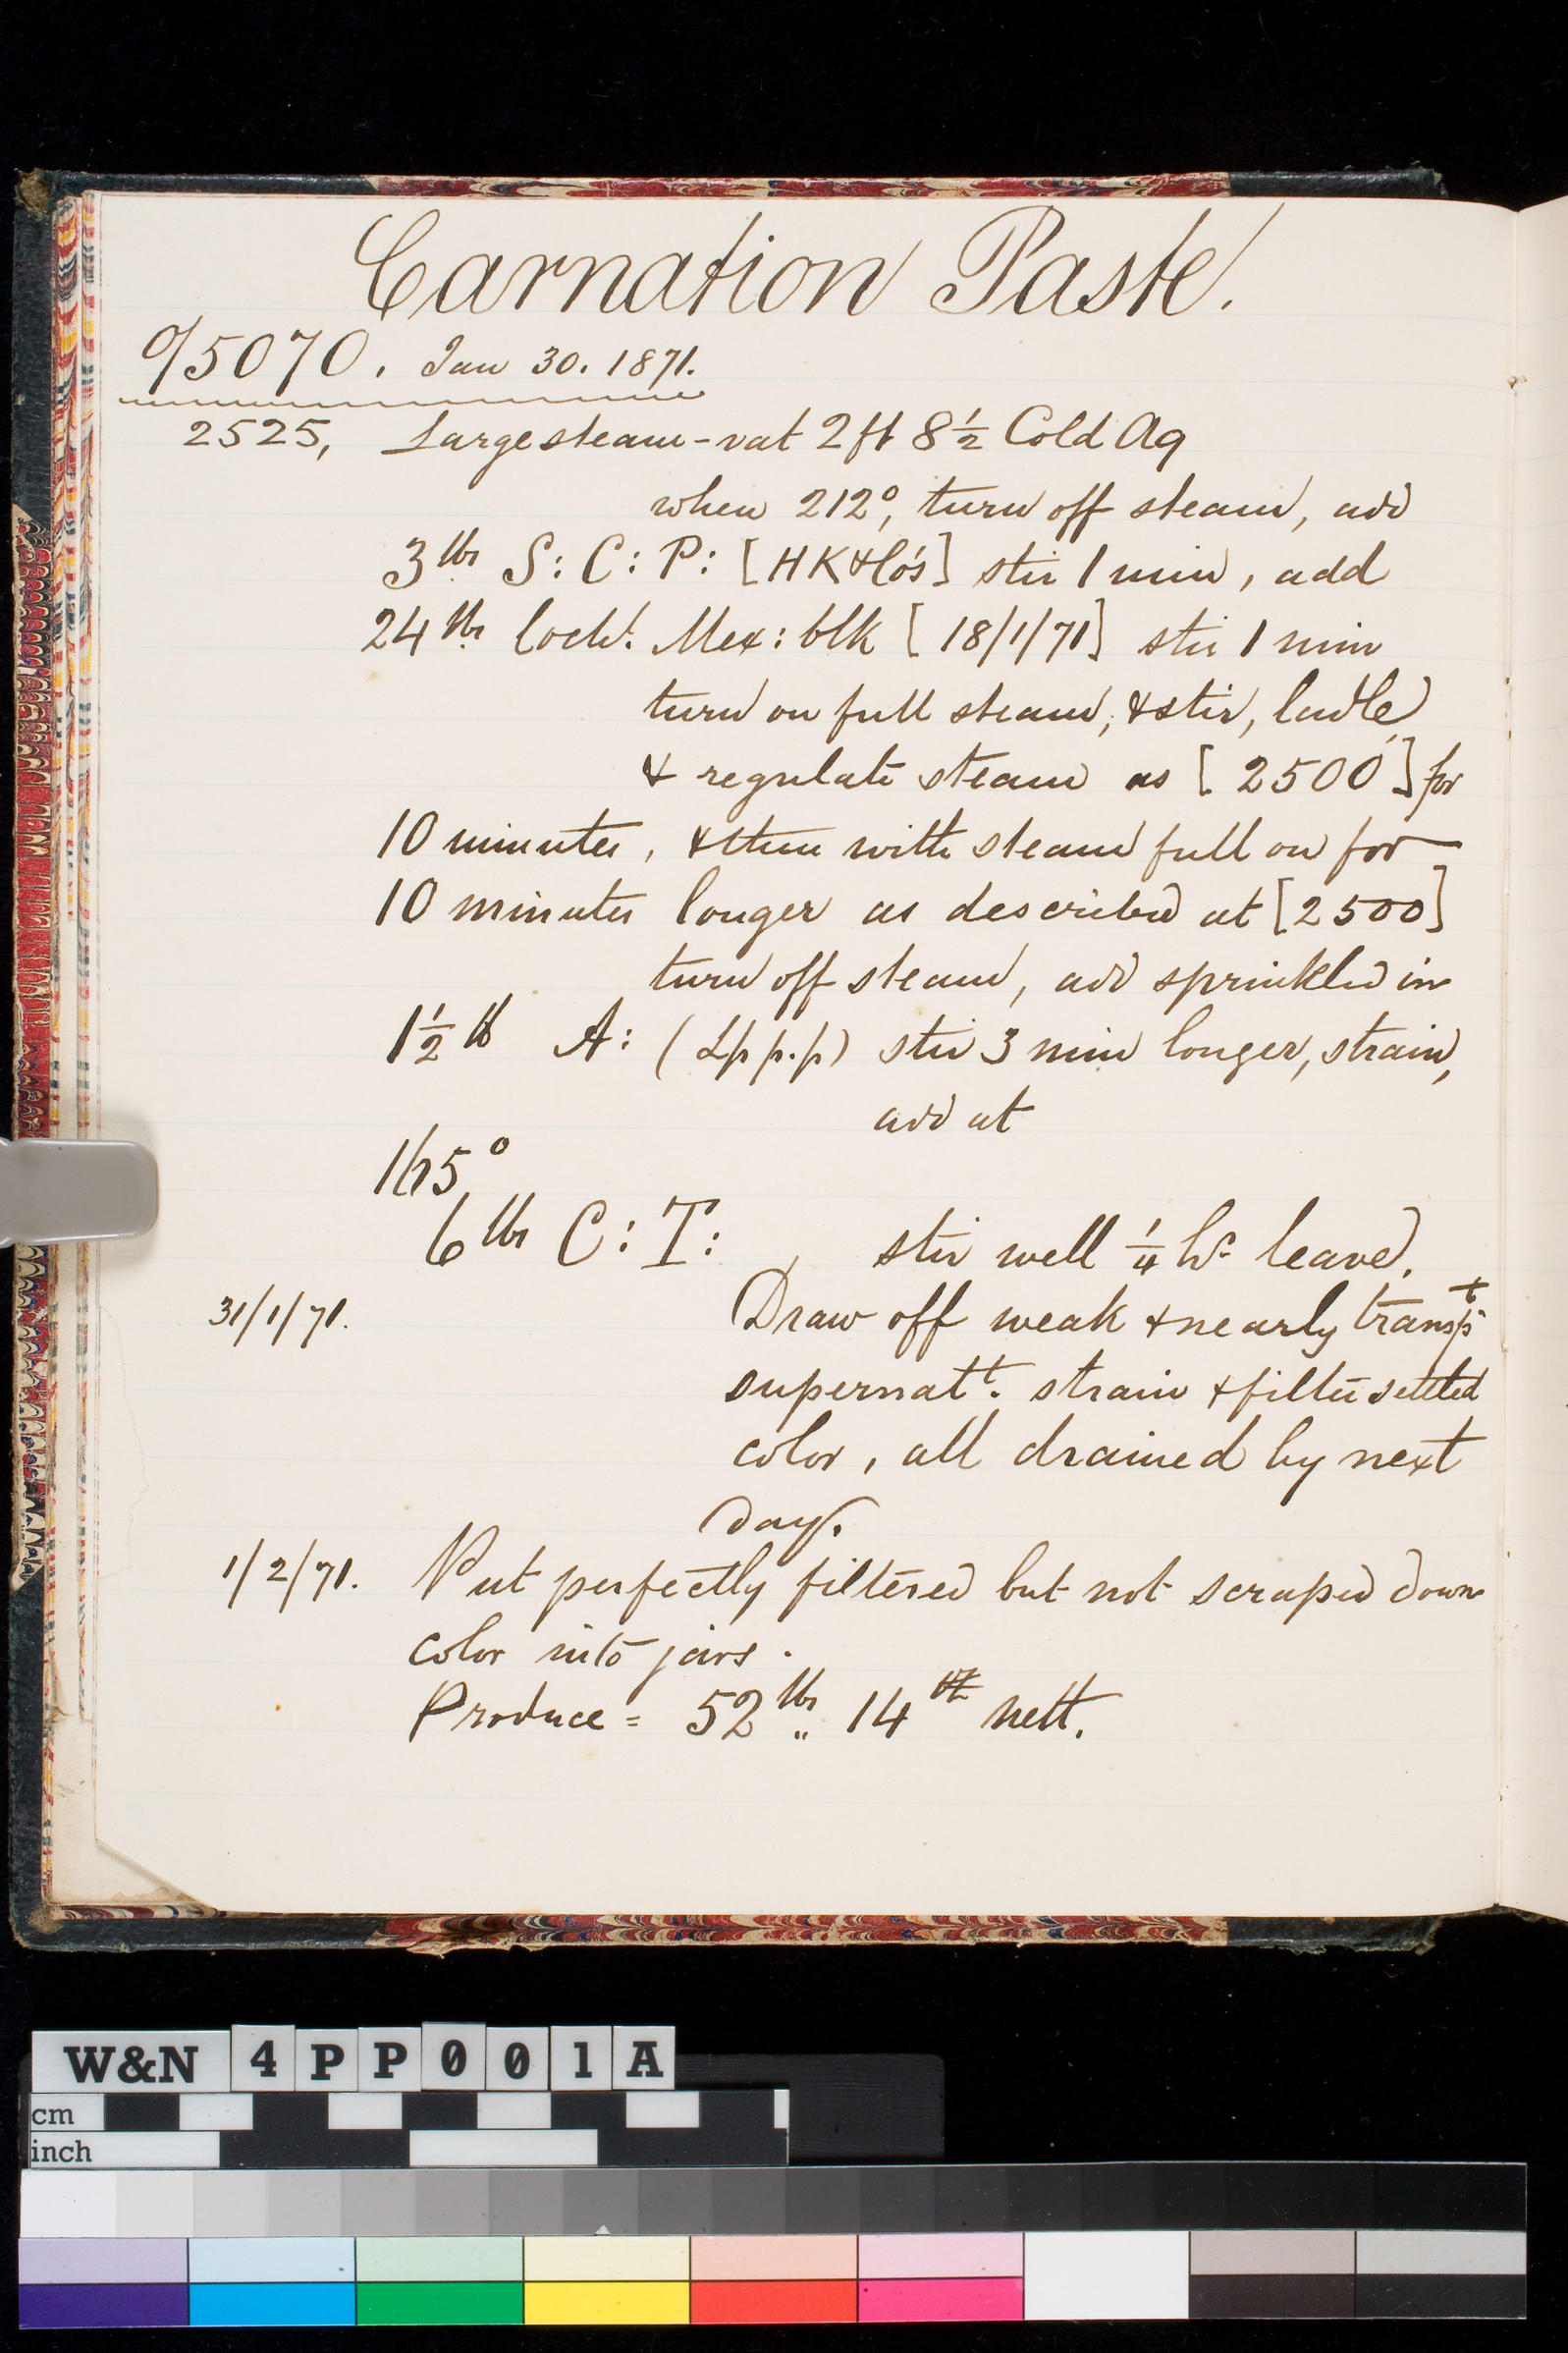 Carnation Paste.
0/5070. Jan 30. 1871.
2525, Large steam-vat 2 ft 8 1/2 Cold Aq
when 212°, turn off steam, add
3 lbs S: C: P: [HK & Co's] stir 1 min, add
24 lbs Coch! Mex: blk [18/1/71] stir 1 min
turn on full steam, & stir, ladle,
& regulate steam as [2500] for
10 minutes, & then with steam full on for
10 minutes longer as described at [2500]
turn off steam, add sprinkled in
1 1/2 lb A: (Lp p.p) stir 3 min longer, strain,
add at
°
6 lbs C: T: stir well 1/4 hr leave.
31/1/71. Draw off weak & nearly transpt
supernatt. strain & filter settled
color, all drained by next
day.
1/2/71. Put perfectly filtered but not scraped down
color into jars.
Produce = 52 lbs .. 14 oz nett.
W&N 4PP001A
cm
inch